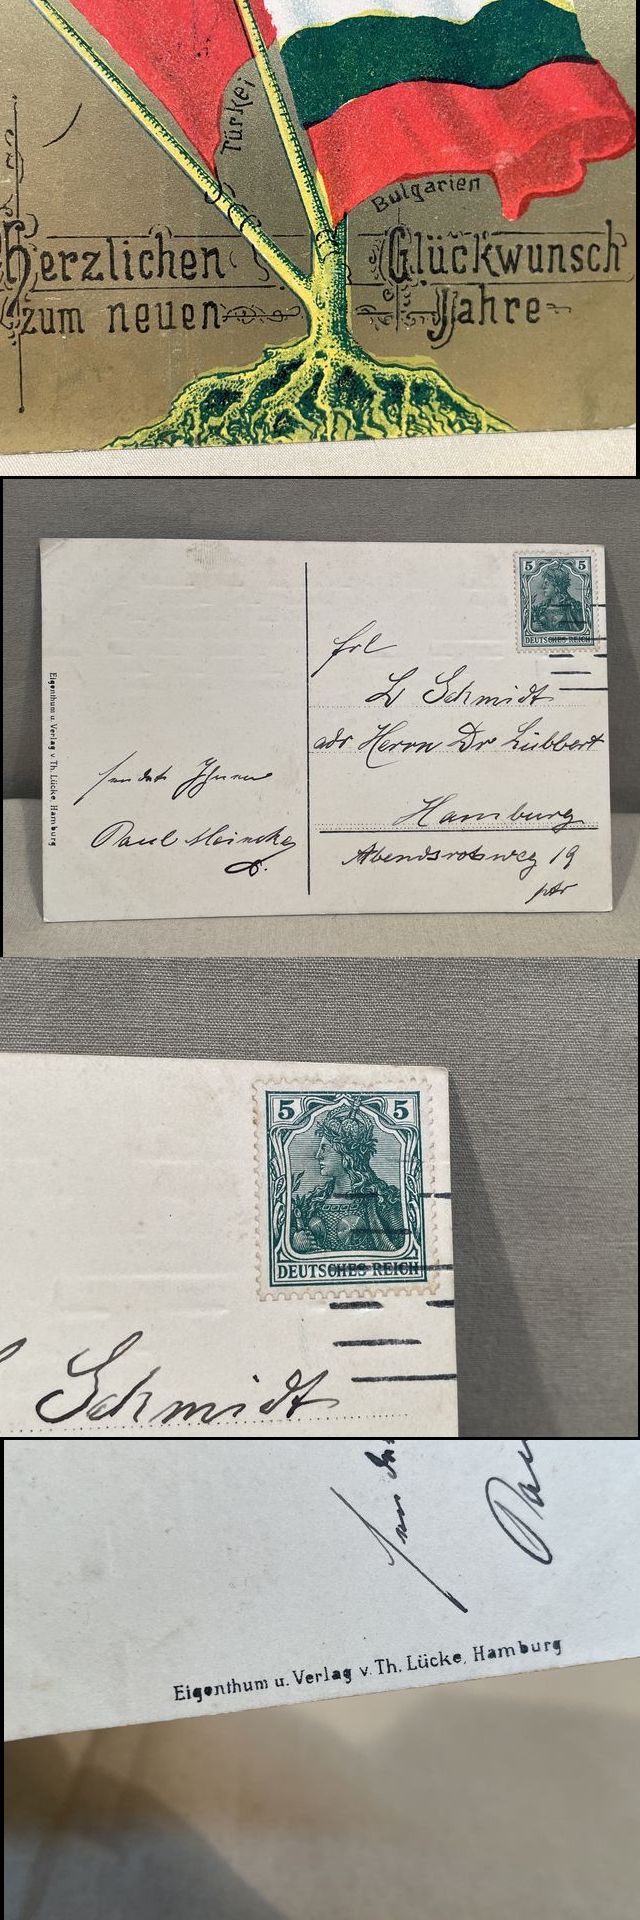 Türkei
Bulgarien
Herzlichen Glückwunsch
zum neuen Jahre
5 5
DEUTSCHES REICH
Frl
L Schmidt
adr Herrn Dr Lübbert
Hamburg
Abendrotsweg 19
ptr
sendet Ihnen
Paul Meincke
Eigenthum u. Verlag v. Th. Lücke, Hamburg
5 5
DEUTSCHES REICH
Schmidt
Eigenthum u. Verlag v. Th. Lücke, Hamburg